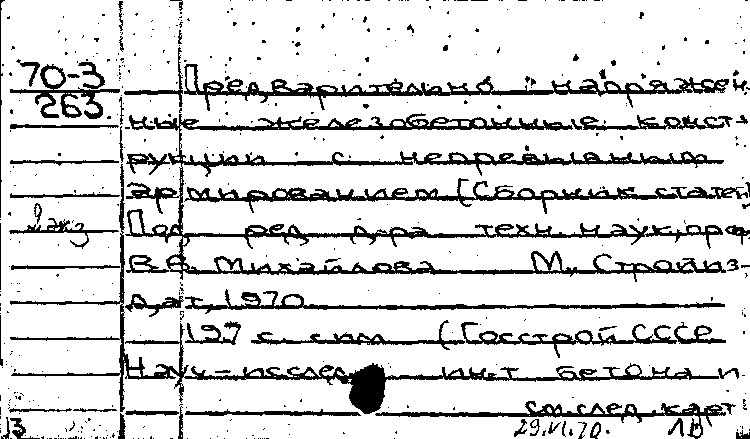 70-3
263
Предварительно напряжен-
ные железобетонные конст-
рукции с непрерывным
армированием [Сборник статей]
2 экз
Под ред д-ра техн. наук, проф
В.В. Михайлова М., Стройиз-
дат, 1970
197 с. с илл (Госстрой СССР
Науч-исслед. ин-т бетона и
см. след. карт
13 29.VI.70. ЛВ